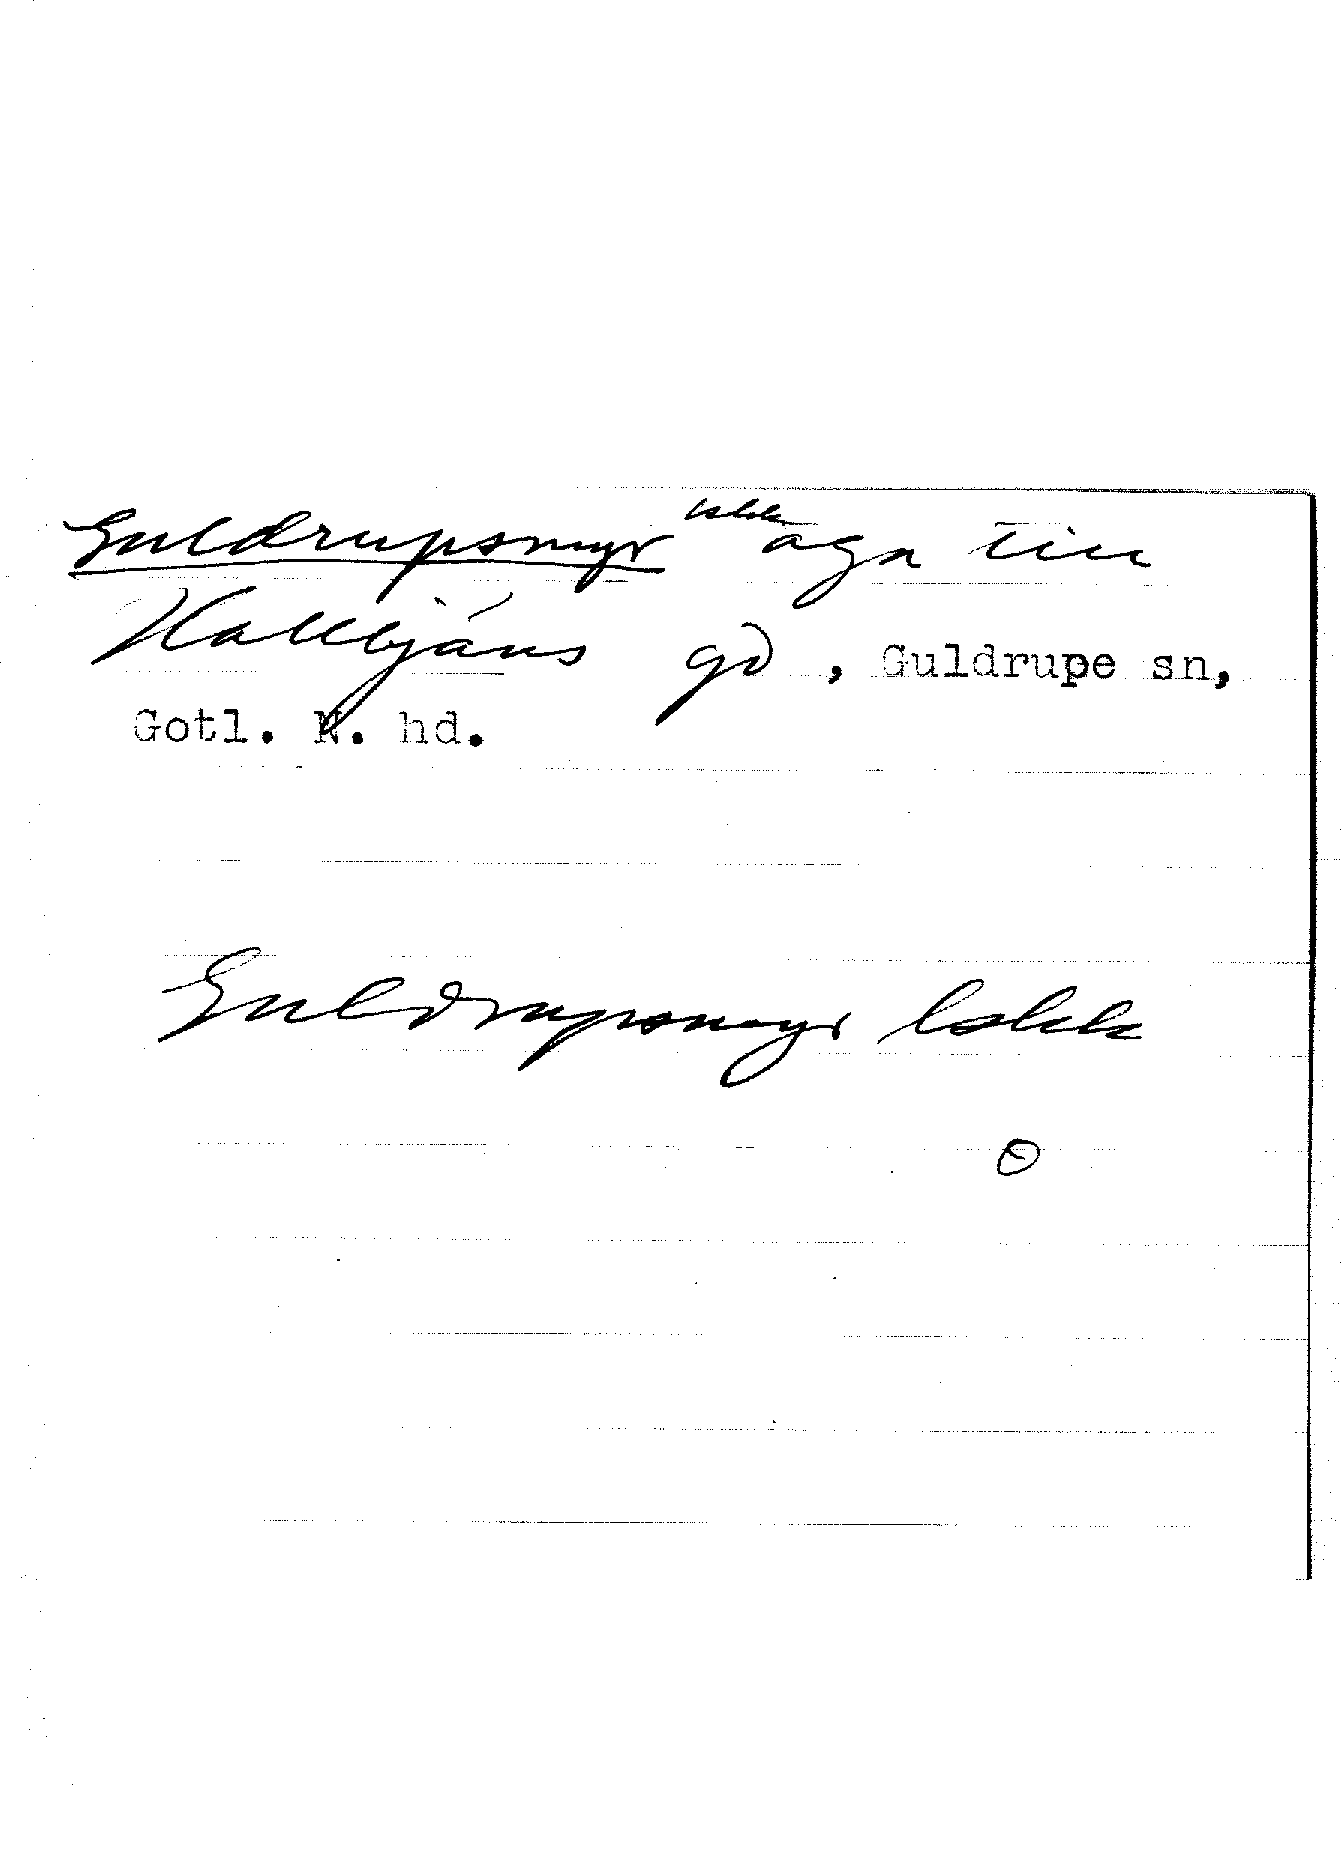 Guldrupsmyr lskk äga till
Hallbjäns gd, Guldrupe sn,
Gotl. N. hd.
Guldrupsmyr lskk